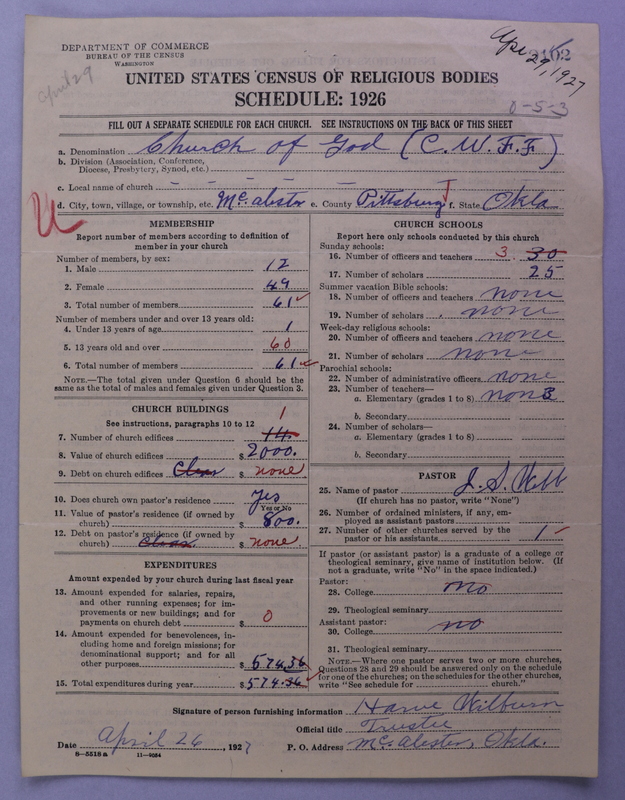 DEPARTMENT OF COMMERCE
BUREAU OF THE CENSUS
WASHINGTON
April 29
Apr 29, 1927
0-5-3
UNITED STATES CENSUS OF RELIGIOUS BODIES
SCHEDULE: 1926
FILL OUT A SEPARATE SCHEDULE FOR EACH CHURCH. SEE INSTRUCTIONS ON THE BACK OF THIS SHEET
a. Denomination Church of God (C. W. F. F.)
b. Division (Association, Conference, Diocese, Presbytery, Synod, etc.)
c. Local name of church
d. City, town, village, or township, etc. McAlester e. County Pittsburg f. State Okla
MEMBERSHIP
Report number of members according to definition of
member in your church
Number of members, by sex:
1. Male 12
2. Female 49
3. Total number of members 61
Number of members under and over 13 years old:
4. Under 13 years of age 1
5. 13 years old and over 60
6. Total number of members 61
NOTE.—The total given under Question 6 should be the
same as the total of males and females given under Question 3.
CHURCH BUILDINGS
See instructions, paragraphs 10 to 12
1
7. Number of church edifices
8. Value of church edifices $ 2000.
9. Debt on church edifices Clear $ none
10. Does church own pastor's residence yes
Yes or No
11. Value of pastor's residence (if owned by
church) $ 800.
12. Debt on pastor's residence (if owned by
church) Clear. $ none
EXPENDITURES
Amount expended by your church during last fiscal year
13. Amount expended for salaries, repairs,
and other running expenses; for im-
provements or new buildings; and for
payments on church debt $ 0
14. Amount expended for benevolences, in-
cluding home and foreign missions; for
denominational support; and for all
other purposes $ 574.36
15. Total expenditures during year $ 574.36
CHURCH SCHOOLS
Report here only schools conducted by this church
Sunday schools:
16. Number of officers and teachers 3 30
17. Number of scholars 25
Summer vacation Bible schools:
18. Number of officers and teachers none
19. Number of scholars none
Week-day religious schools:
20. Number of officers and teachers none
21. Number of scholars none
Parochial schools:
22. Number of administrative officers none
23. Number of teachers—
a. Elementary (grades 1 to 8) none
b. Secondary
24. Number of scholars—
a. Elementary (grades 1 to 8)
b. Secondary
PASTOR
25. Name of pastor J. S. Webb
(If church has no pastor, write "None")
26. Number of ordained ministers, if any, em-
ployed as assistant pastors
27. Number of other churches served by the
pastor or his assistants 1
If pastor (or assistant pastor) is a graduate of a college or
theological seminary, give name of institution below. (If
not a graduate, write "No" in the space indicated.)
Pastor:
28. College no
29. Theological seminary
Assistant pastor:
30. College no
31. Theological seminary
NOTE.—Where one pastor serves two or more churches,
Questions 28 and 29 should be answered only on the schedule
for one of the churches; on the schedules for the other churches,
write "See schedule for church."
Signature of person furnishing information Harve Wilburn
Official title Trustee
Date April 26, 1927 P. O. Address McAlester, Okla.
8—5518a 11—9064